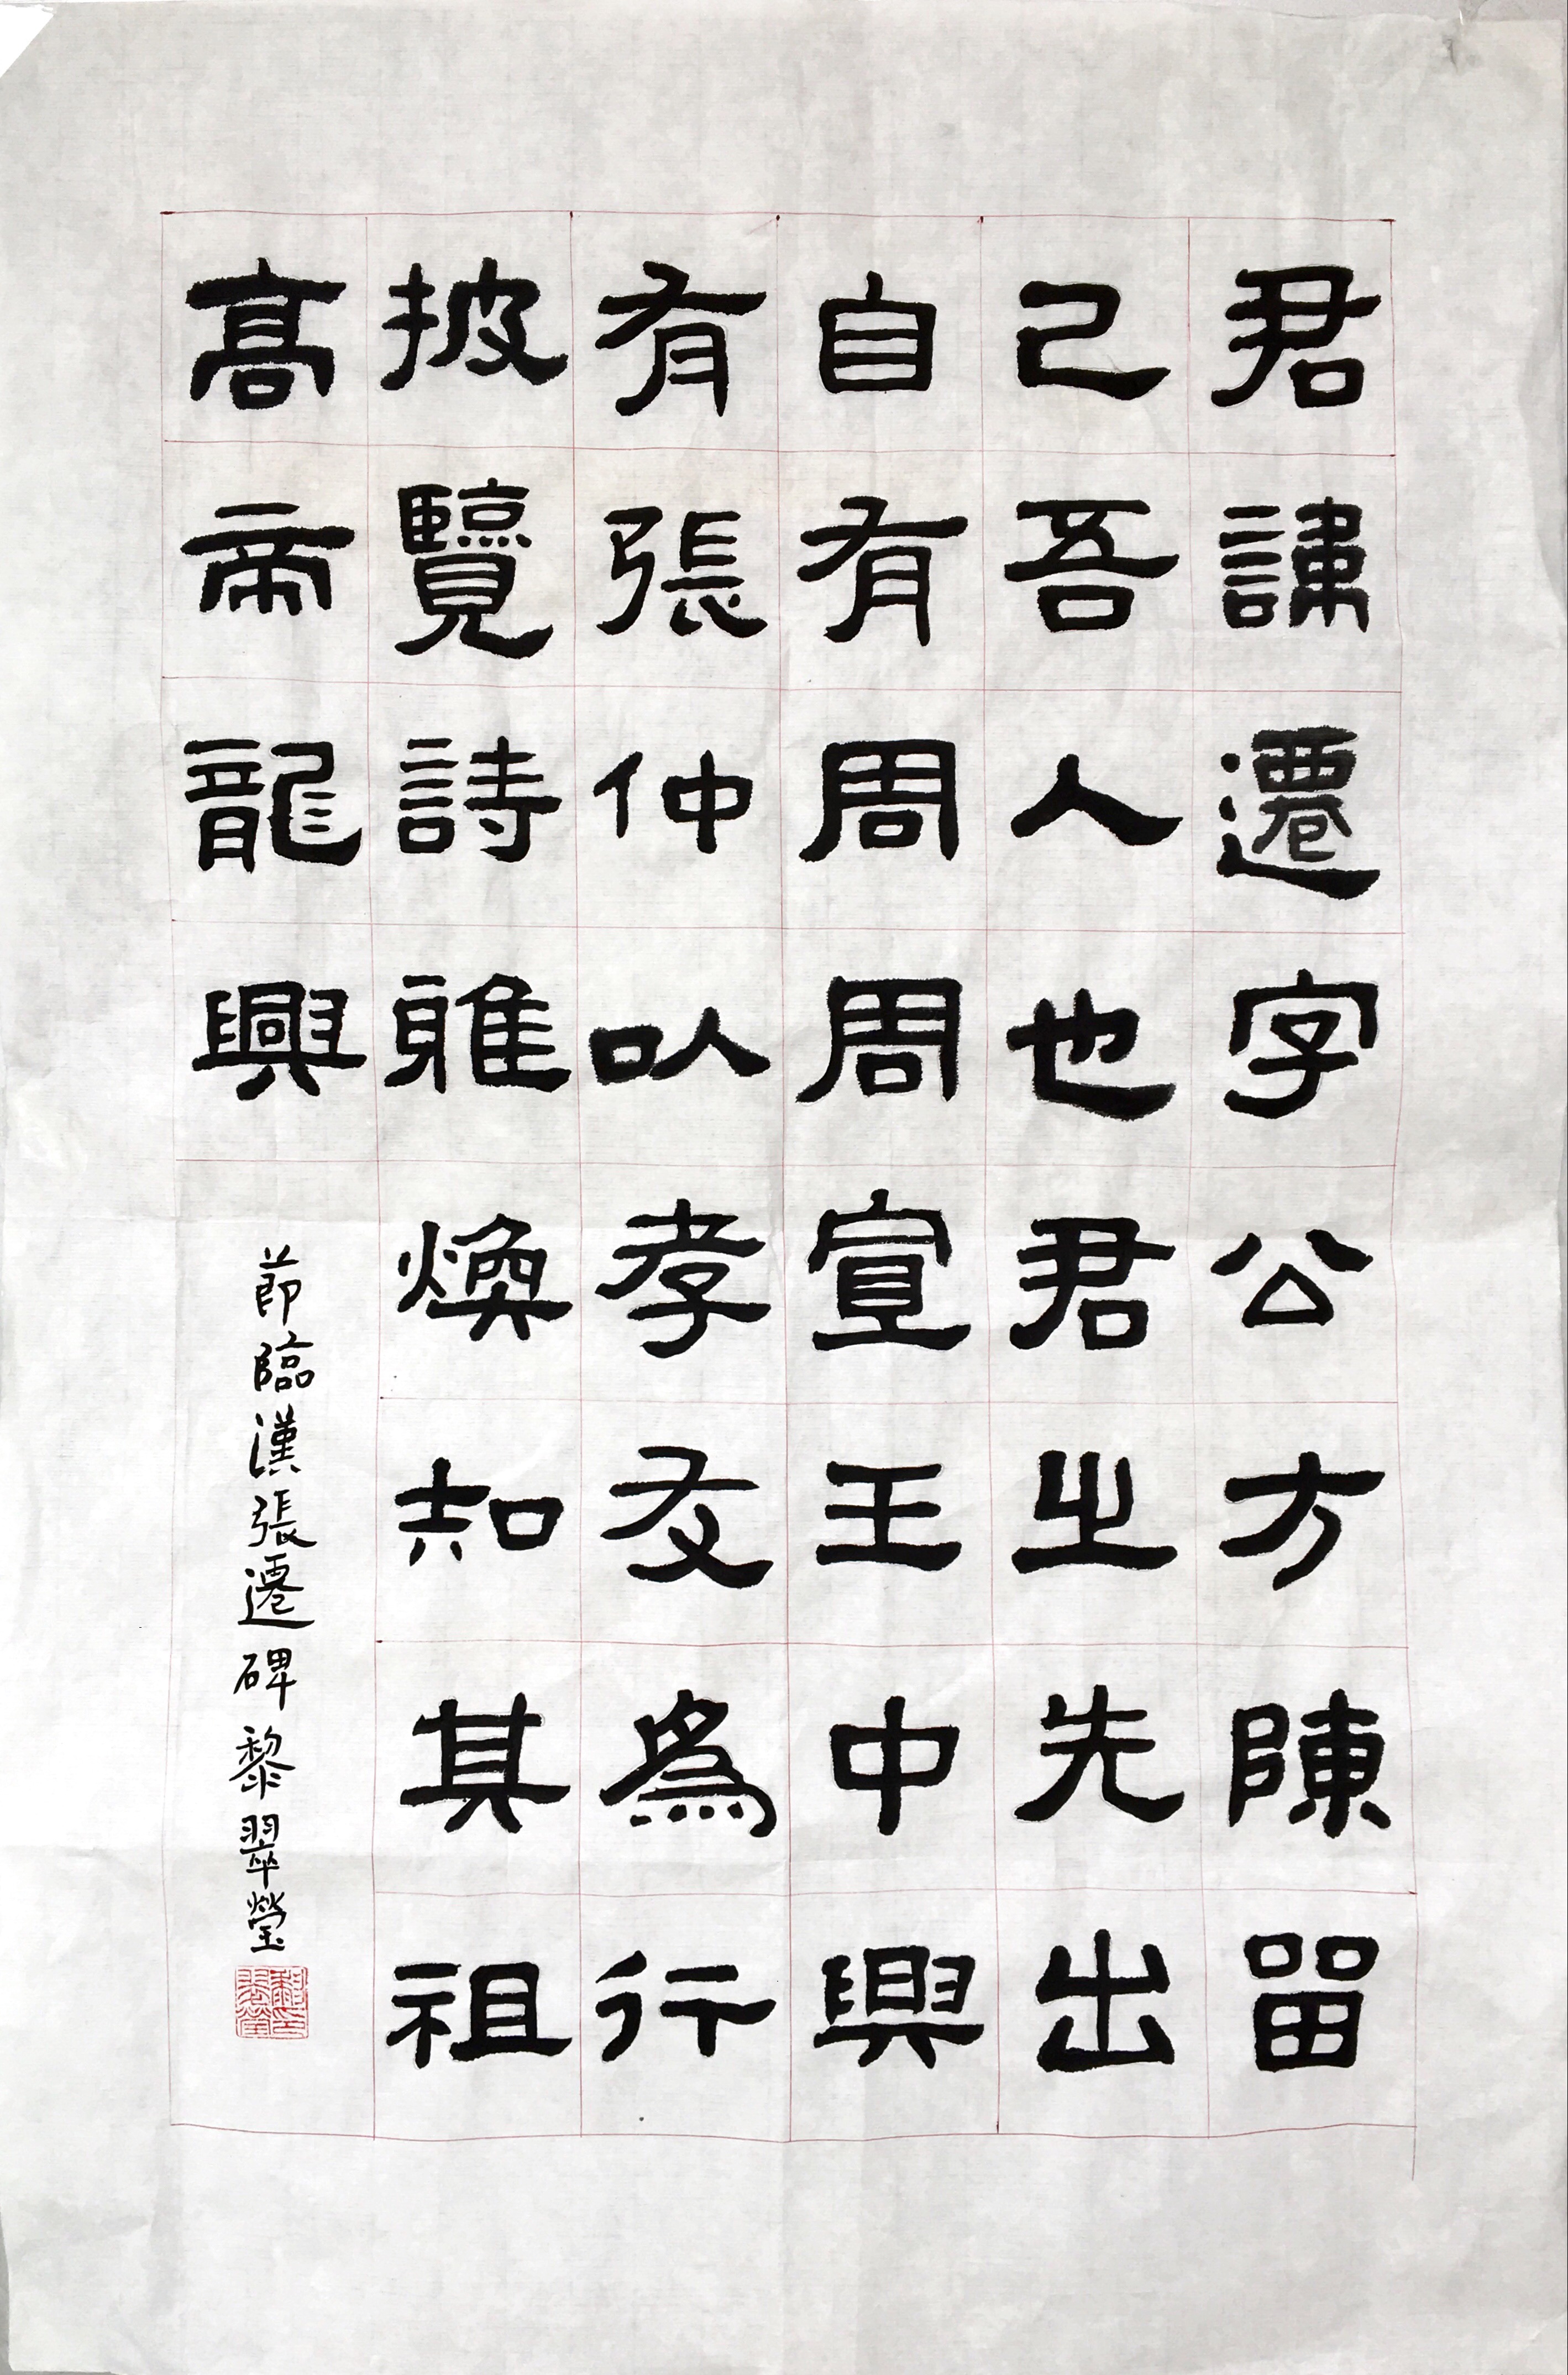 君諱遷字公方陳留
己吾人也君之先出
自有周周宣王中興
有張仲以孝友為行
披覽詩雅煥知其祖
高帝龍興
節臨漢張遷碑黎翠瑩